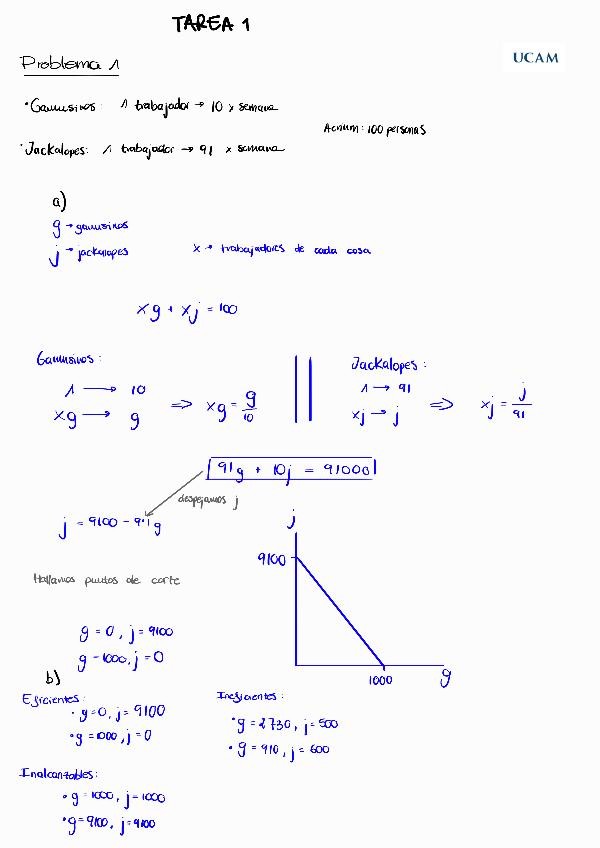 TAREA 1
Problema 1
UCAM
· Gamusinos: 1 trabajador → 10 x semana
Acnum: 100 personas
· Jackalopes: 1 trabajador → 91 x semana
a)
g → gamusinos
j → jackalopes x → trabajadores de cada cosa
xg + xj = 100
Gamusinos: Jackalopes:
1 → 10 1 → 91
xg → g ⇒ xg = g/10 xj → j ⇒ xj = j/91
91g + 10j = 91000
despejamos j
j = 9100 - 9.1g
j
9100
Hallamos puntos de corte
g = 0, j = 9100
g = 1000, j = 0
1000 g
b)
Eficientes: Ineficientes:
· g = 0, j = 9100 · g = 2730, j = 500
· g = 1000, j = 0 · g = 910, j = 600
Inalcanzables:
· g = 1000, j = 1000
· g = 9100, j = 9100